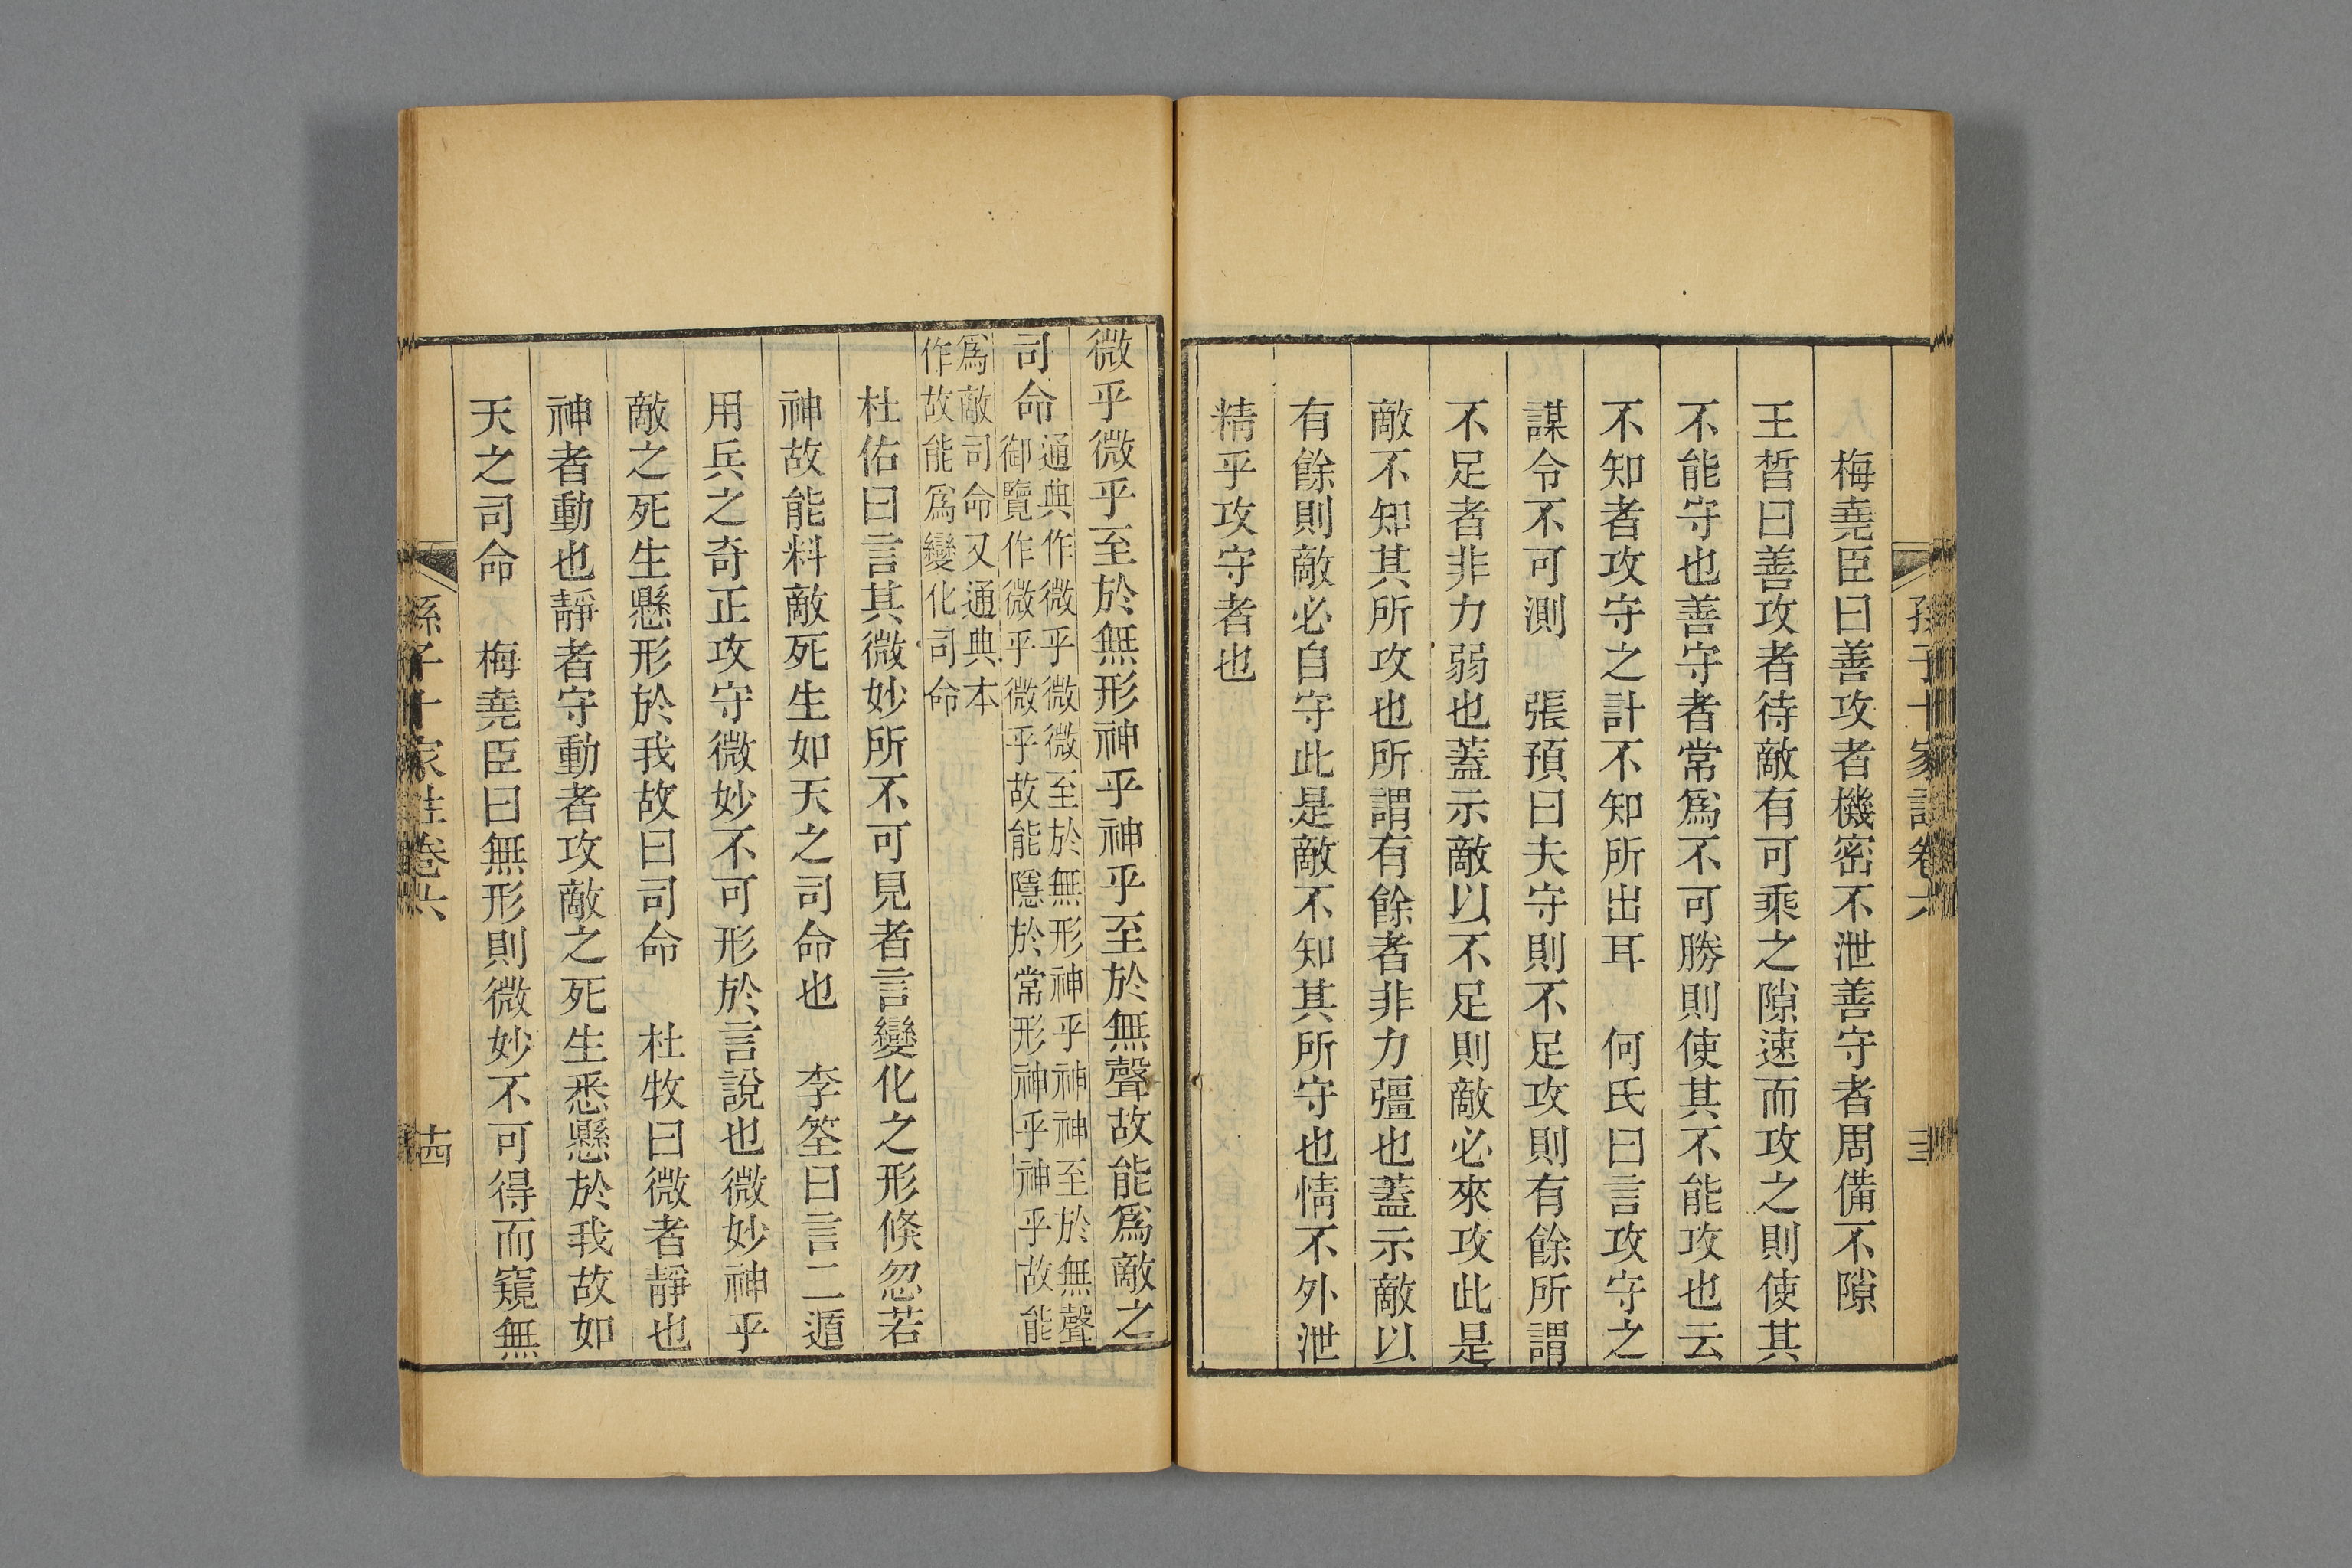 梅堯臣曰善攻者機密不泄善守者周備不隙
王晳曰善攻者待敵有可乘之隙速而攻之則使其
不能守也善守者常爲不可勝則使其不能攻也云
不知者攻守之計不知所出耳　何氏曰言攻守之
謀令不可測　張預曰夫守則不足攻則有餘所謂
不足者非力弱也蓋示敵以不足則敵必來攻此是
敵不知其所攻也所謂有餘者非力彊也蓋示敵以
有餘則敵必自守此是敵不知其所守也情不外泄
精乎攻守者也
微乎微乎至於無形神乎神乎至於無聲故能爲敵之
司命
通典作微乎微微至於無形神乎神神至於無聲
御覽作微乎微乎故能隱於常形神乎神乎故能
爲敵司命又通典本
作故能爲變化司命
杜佑曰言其微妙所不可見者言變化之形倏忽若
神故能料敵死生如天之司命也　李筌曰言二遁
用兵之奇正攻守微妙不可形於言說也微妙神乎
敵之死生懸形於我故曰司命　杜牧曰微者靜也
神者動也靜者守動者攻敵之死生悉懸於我故如
天之司命　梅堯臣曰無形則微妙不可得而窺無
孫子十家註卷六